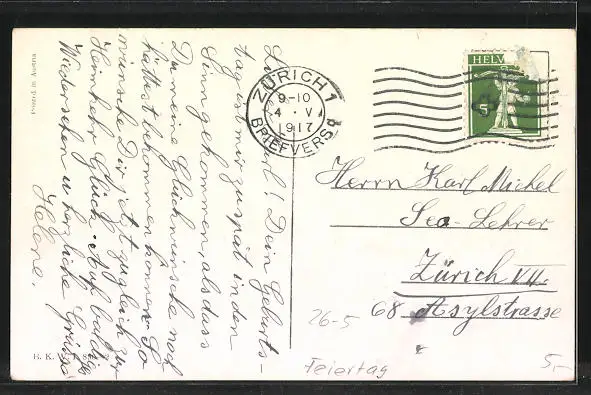 Dein Geburts-
tag ist mir zu spät in den
Sinn gekommen, als dass
Du meine Glückwünsche noch
hättest bekommen können. So
wünsche Dir jetzt zugleich zur
Heimkehr Glück. Auf baldiges
Wiedersehen u. herzliche Grüsse
Helene.
Printed in Austria
B. K. W. I.
ZÜRICH 1
9-10
4 · V
1917
BRIEFVERS
HELV
5
Herrn Karl Michel
Sec-Lehrer
Zürich VII
68 Asylstrasse
26-5
Feiertag
5,-